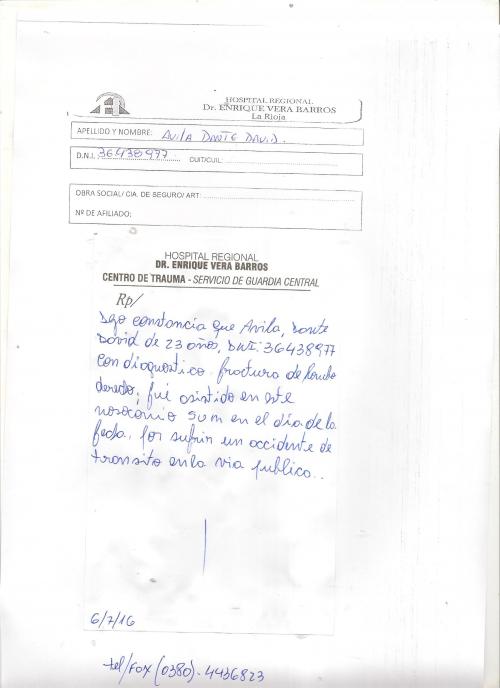 HOSPITAL REGIONAL
Dr. ENRIQUE VERA BARROS
La Rioja
APELLIDO Y NOMBRE: AVILA DANTE DAVID.
D.N.I. 36438977 CUIT/CUIL:
OBRA SOCIAL/ CIA. DE SEGURO/ ART:
Nº DE AFILIADO:
HOSPITAL REGIONAL
DR. ENRIQUE VERA BARROS
CENTRO DE TRAUMA - SERVICIO DE GUARDIA CENTRAL
Rp/
Dejo constancia que Avila, Dante
David de 23 años, DNI: 36438977
con diagnostico fractura de
derecho; fué asistido en este
nosocomio en el día de la
fecha, por sufrir un accidente de
transito en la via publica..
6/7/16
tel/fax (0380)-4436823